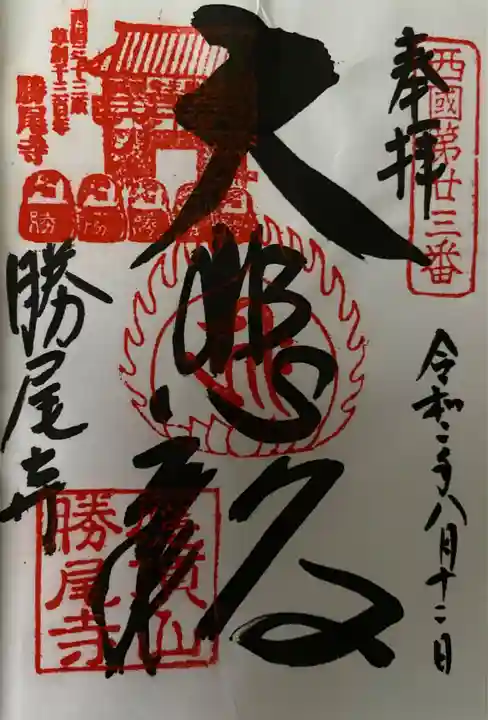 西國第廿三番
奉拝
令和二年八月十二日
大悲殿
勝尾寺
勝尾寺
勝
勝
勝
應頂山
勝尾寺